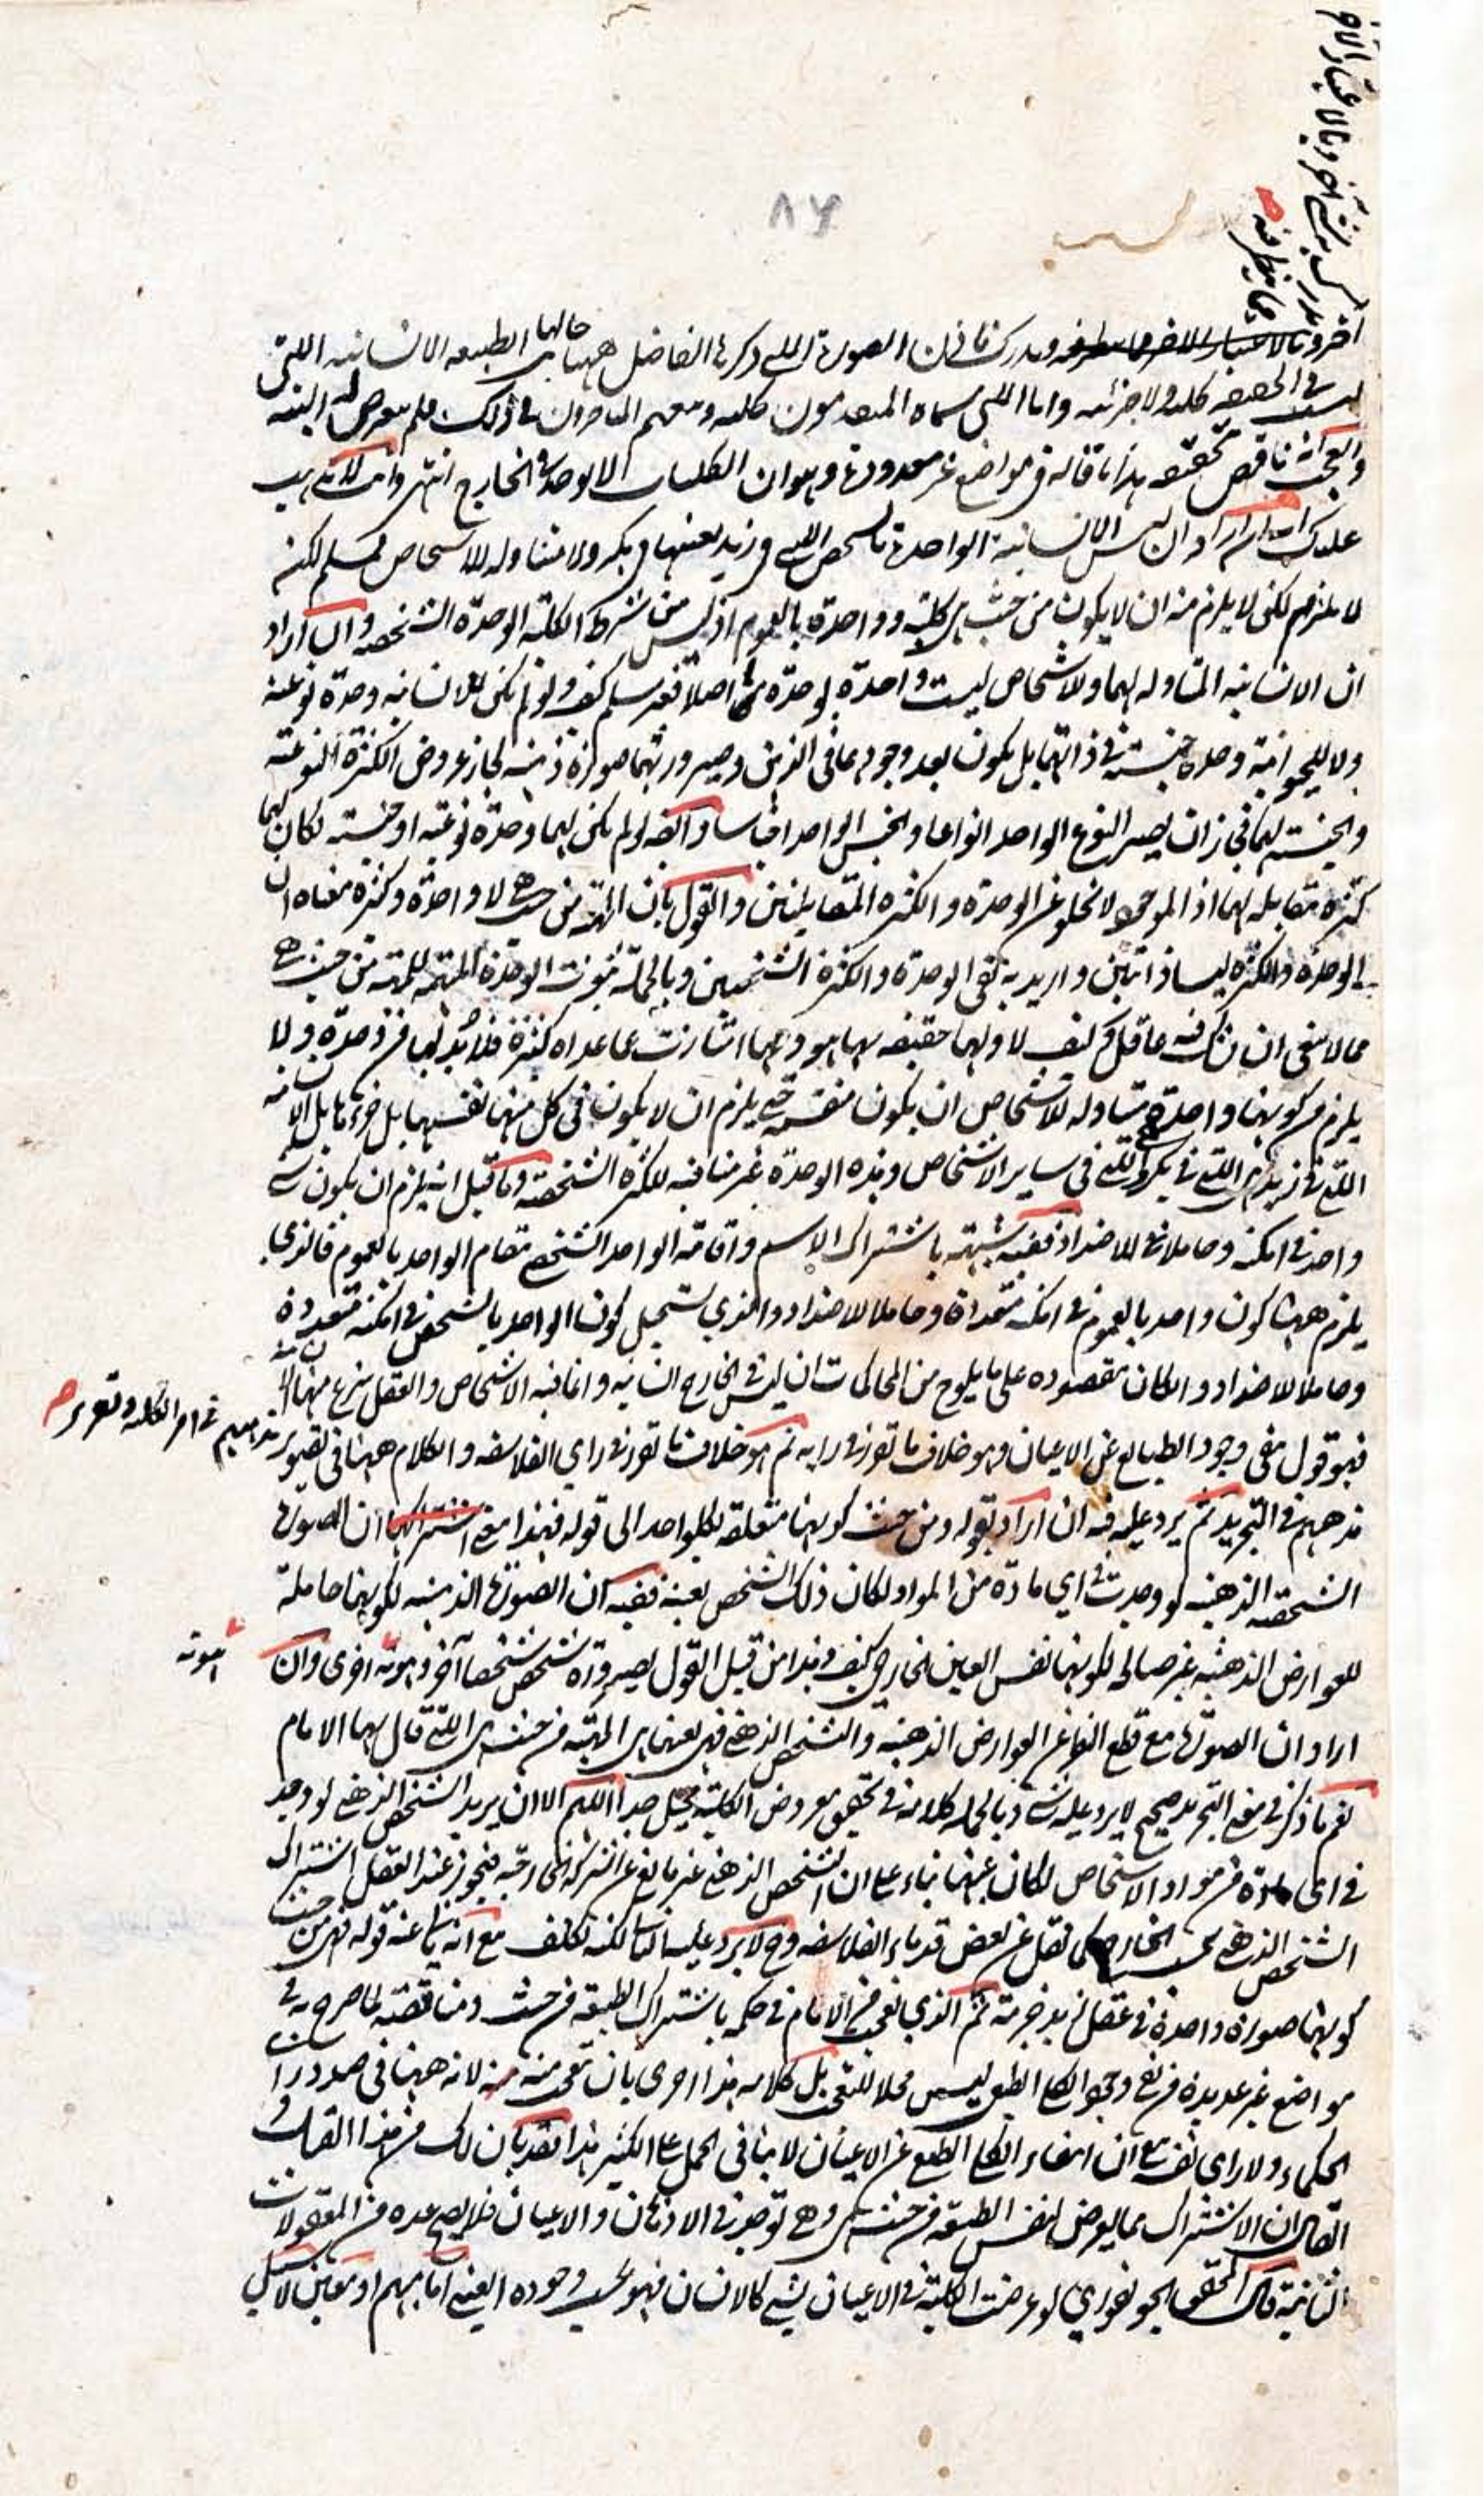 ٨٦
اخر وبالاعتبار الاخر مما ينظر فيه ويدرك فان الصورة التي ذكرها الفاضل ههنا حالها الطبيعه الانسانيه التي
ليست في الحقيقه كليه ولا جزئيه واما التي سماه المتقدمون كليه ومعهم المتاخرون في ذلك فلم يتعرض له البته
والعجب انه ناقض تحقيقه هذا ما قاله في مواضع غير معدودة وهو ان الكليات لا توجد في الخارج انتهى وانت لا يذهب
عليك انه ان اراد ان ليس الانسانية الواحدة بالشخص التي في زيد بعينها في بكر ولا متناوله للاشخاص فمسلم لكن
لا يلزم منه ان لا يكون من حيث هي كلية وواحدة بالعموم اذ ليس من شرط الكلية الوحدة الشخصيه وان اراد
ان الانسانيه المتناوله لهما وللاشخاص ليست واحدة بوحدة ما اصلا فغير مسلم كيف ولو لم يكن للانسانيه وحدة نوعية
ولا للحيوانية وحدة جنسية في ذاتهما بل يكون بعد وجودهما في الذهن وصيرورتهما صورة ذهنيه لجاز عروض الكثرة النوعية
والجنسية لهما فجاز ان يصير النوع الواحد انواعا والجنس الواحد اجناسا وايضا لو لم يكن لهما وحدة نوعيه او جنسيه لكان لهما
كثرة مقابله لهما اذ الموجود لا يخلو عن الوحدة والكثره المتقابلتين والقول بان الماهية من حيث هي لا واحدة ولا كثيرة معناه ان
الوحدة والكثره ليسا ذاتيتين او اريد به نفي الوحدة والكثرة الشخصيتين وبالجملة ثبوت الوحدة المبهمه للماهيه من حيث هي
مما لا ينبغي ان يشك فيه عاقل كيف لا ولهما حقيقه بها هو هو وبها امتازت عما عداه كثرة فلا بد لها من وحدة ولا
يلزم من كونها واحدة متناوله للاشخاص ان يكون منقسمة حتى يلزم ان لا يكون في كل منهما نفسها بل جزءها بل الانسانيه
التي في زيد هي التي في بكر والتي في ساير الاشخاص وهذه الوحدة غير منافيه للكثرة الشخصيه وما قيل انه يلزم ان يكون شيء
واحد في امكنة وحاملا للاضداد ففيه شبهة باشتراك الاسم واقامة الواحد الشخصي مقام الواحد بالعموم فالذي
يلزم ههنا كون واحد بالعموم في امكنه متعددة وحاملا للاضداد والذي يستحيل كون الواحد بالشخص في امكنه متعددة
وحاملا للاضداد وان كان مقصوده على ما يلوح من المحاكمات ان ليس في الخارج انسانيه وانما فيه الاشخاص والعقل ينتزع منها الانسانية
فهو قول بنفي وجود الطبايع عن الاعيان وهو خلاف ما تقرر في رايه ثم هو خلاف ما تقرر في راي الفلاسفه والكلام ههنا في تصوير
مذهبهم في امر الكليه وتقرير صح
مذهبهم في التجريد ثم يرد عليه فيه ان اراد بقوله ومن حيث كونها متعلقه بكل واحد الى قوله فهذا معنى اشتراكها ان الصورة
الشخصيه الذهنيه لو وجدت في اي مادة من المواد لكان ذلك الشخص بعينه ففيه ان الصورة الذهنيه لكونها حاملة
للعوارض الذهنيه غير صالحه لكونها نفس العين الخارجي كيف وهذا من قبيل القول بصيرورة شخص شخصا آخر وهوية اخرى وان
هوية
اراد ان الصورة مع قطع النظر عن العوارض الذهنيه والتشخص الذهني فهي بعينها هي الماهية من حيث هي التي قال بها الامام
نعم ما ذكر في معنى التجريد صحيح لا يرد عليه شيء وبالجمله كلامه في تحقيق معروض الكلية مختل جدا اللهم الا ان يريد الشخص الذهني لو وجد
في اي مادة من مواد الاشخاص لكان عينها بناء على ان التشخص الذهني غير مانع عن الشركة الخارجيه فيجوز عند العقل اشتراك
الشخص الذهني بحسب الخارج كما نقل عن بعض قدماء الفلاسفه وح لا يرد عليه لكنه تكلف مع انه يابى عنه قوله فمن حيث
كونها صورة واحدة في عقل زيد جزئية ثم الذي تعجب من الامام في حكمه باشتراك الطبيعه من حيث هي ومناقضته لما صرح به في
مواضع غير عديدة من نفي وجود الكلي الطبيعي ليس محلا للتعجب بل كلامه هذا احرى بان يتعجب منه لانه ههنا في صدد راي
الحكماء ولا راي نفسه مع ان انتفاء الكلي الطبيعي عن الاعيان لا ينافي الحمل على الكثير هذا فقد بان لك من هذا المقال
ان الاشتراك مما يعرض لنفس الطبيعه من حيث هي وهي توجد في الاذهان والاعيان فلا يصح عده من المعقولات
الثانية قال المحقق الجونفوري لو عرضت الكلية في الاعيان لشيء كالانسان فهو بحسب وجوده العيني اما مبهم او متعين لا سبيل